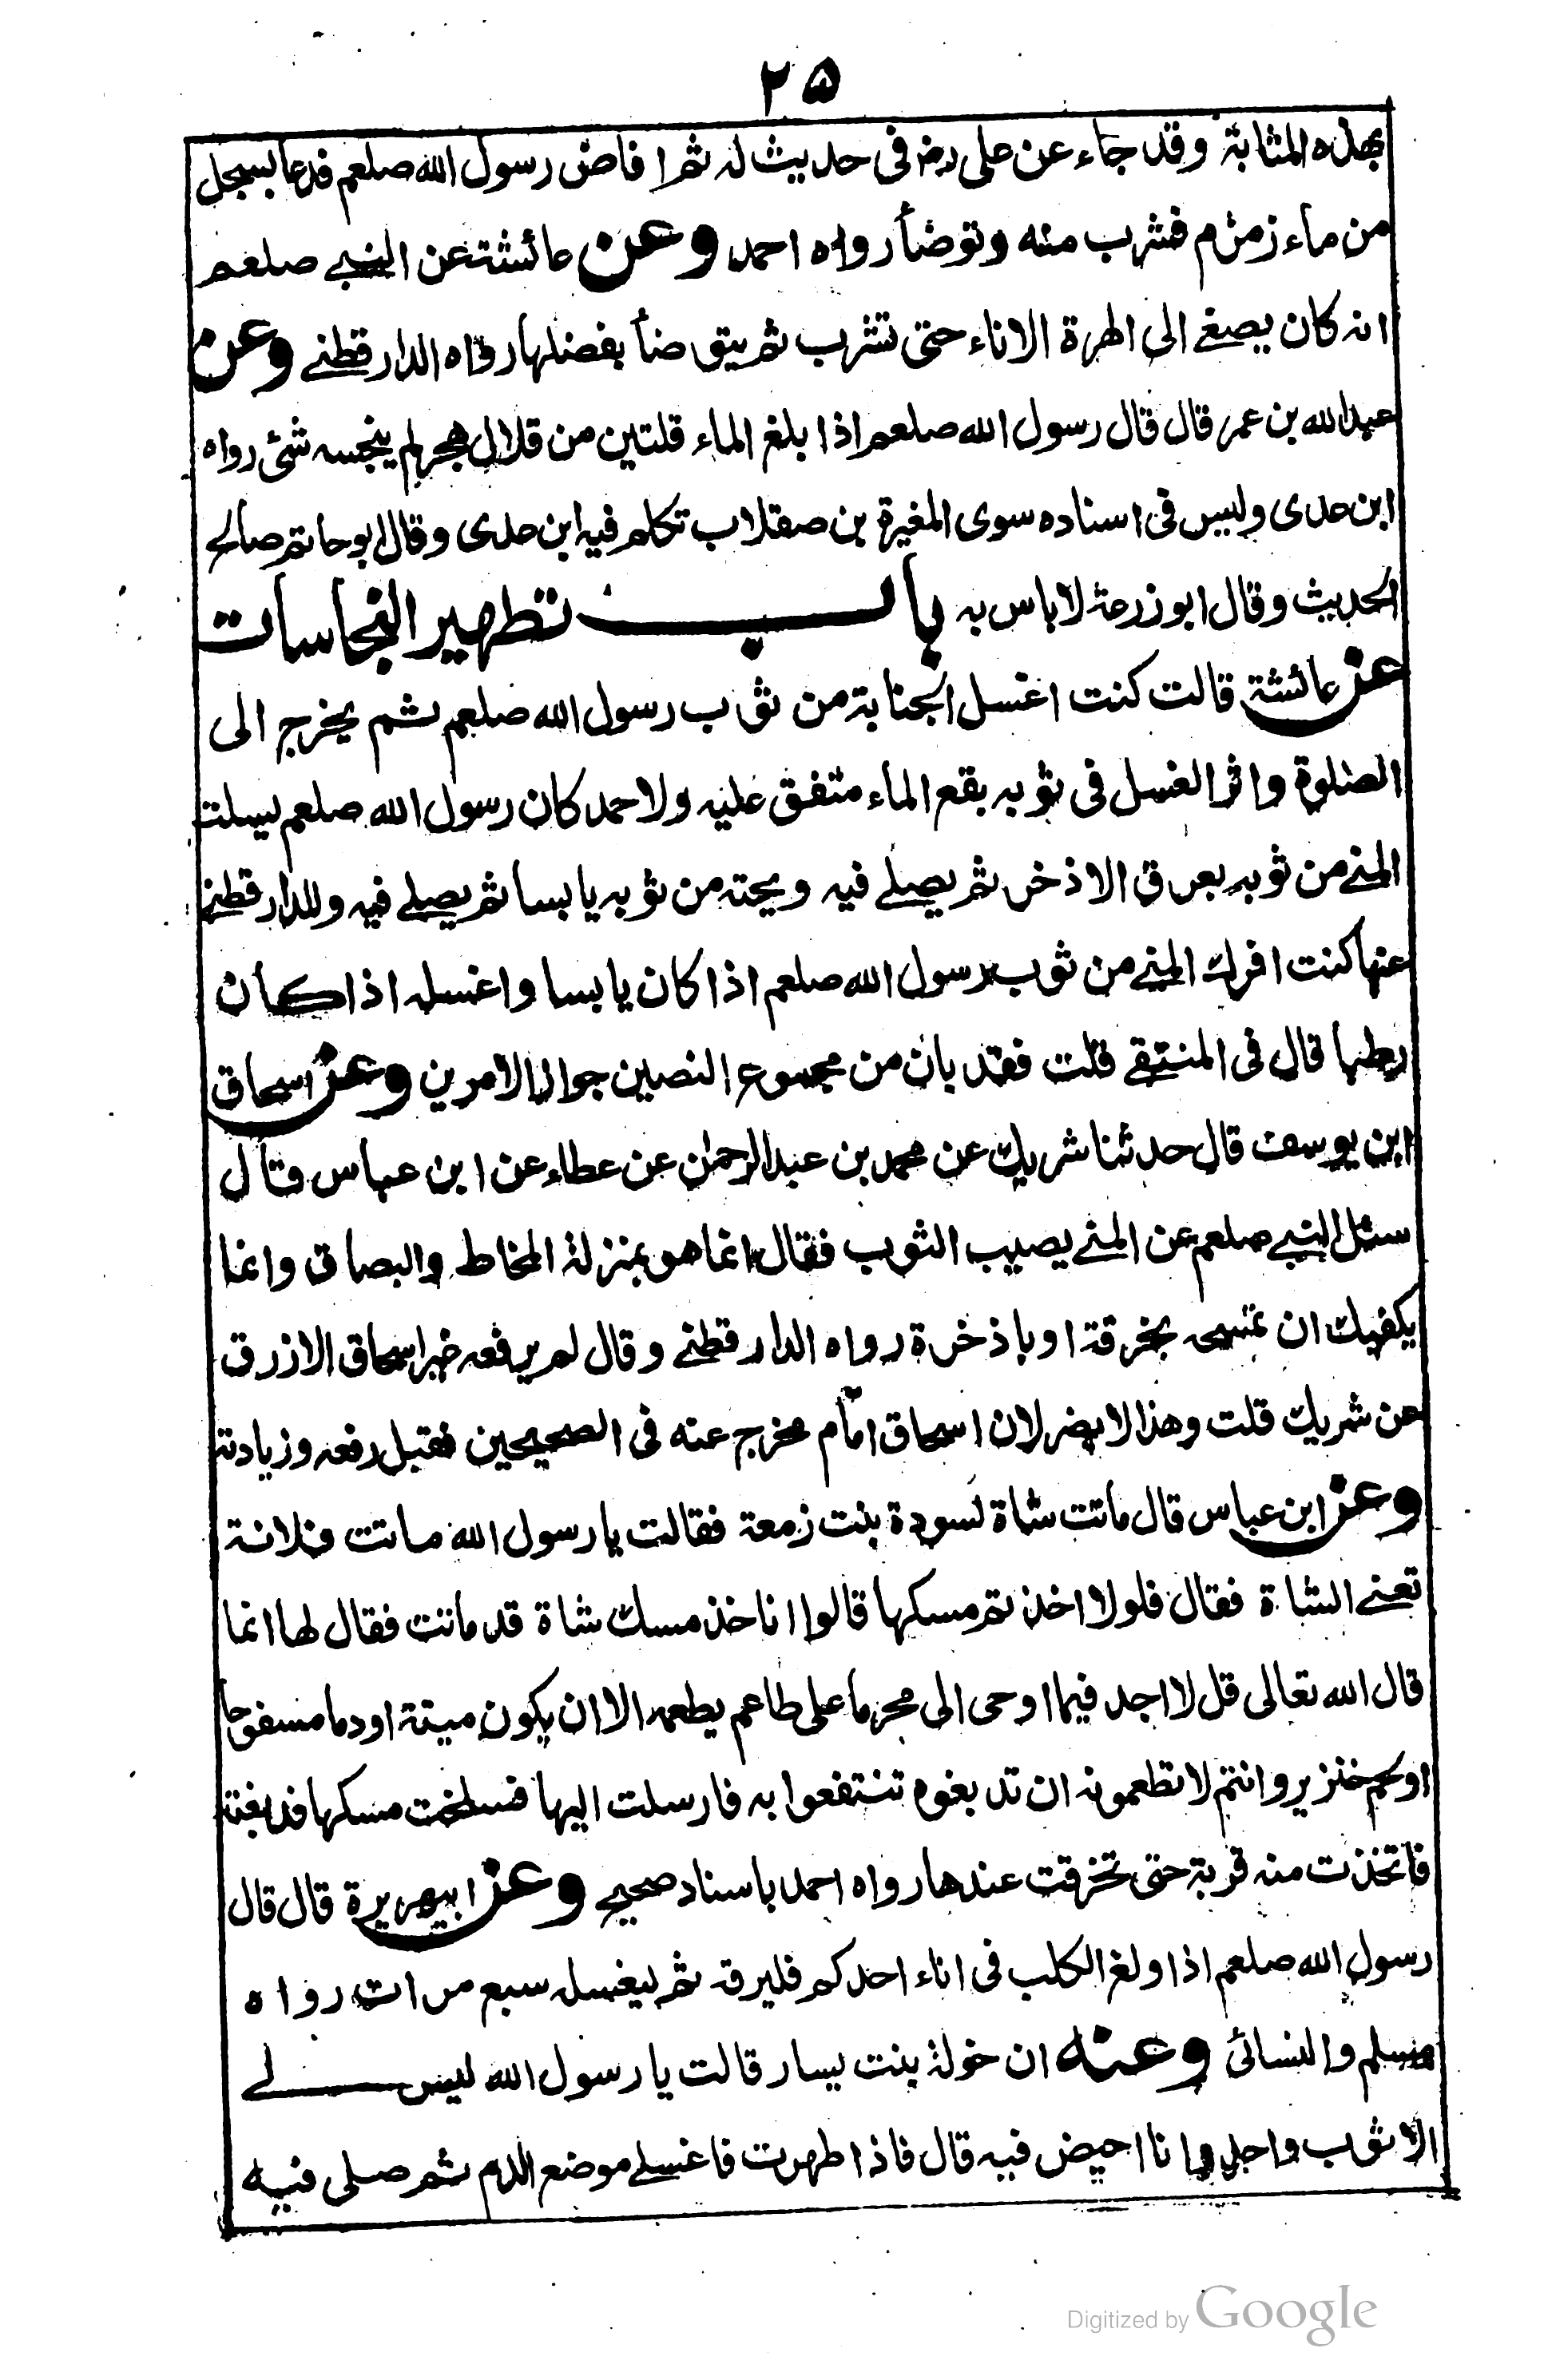 ٢٥
بهذه المثابة وقد جاء عن على رض فى حديث له ثم افاض رسول الله صلعم فدعا بسجل
من ماء زمزم فشرب منه وتوضأ رواه احمد وعن عائشة عن النبے صلعم
انه كان يصغے الى الهرة الاناء حتى تشرب ثم يتوضأ بفضلها رواه الدارقطنے وعن
عبدالله بن عمر قال قال رسول الله صلعم اذا بلغ الماء قلتين من قلال هجر لم ينجسه شئ رواه
ابن عدى وليس فى اسناده سوى المغيرة بن صقلاب تكلم فيه ابن عدى وقال ابوحاتم صالح
الحديث وقال ابوزرعة لاباس به باب تطهير النجاسات
عن عائشة قالت كنت اغسل الجنابة من ثوب رسول الله صلعم ثم يخرج الى
الصلوة واثر الغسل فى ثوبه بقع الماء متفق عليه ولاحمد كان رسول الله صلعم ليسلت
المنے من ثوبه بعرق الاذخر ثم يصلے فيه ويحته من ثوبه يابسا ثم يصلے فيه وللدارقطنے
عنها كنت افرك المنے من ثوب رسول الله صلعم اذا كان يابسا واغسله اذا كان
رطبا قال فى المنتقے قلت فقد بان من مجموع النصين جواز الامرين وعن اسحاق
ابن يوسف قال حدثنا شريك عن محمد بن عبدالرحمن عن عطاء عن ابن عباس قال
سئل النبے صلعم عن المنے يصيب الثوب فقال انما هو بمنزلة المخاط والبصاق وانما
يكفيك ان تمسحه بخرقة او باذخرة رواه الدارقطنے وقال لم يرفعه غير اسحاق الازرق
عن شريك قلت وهذا لايضر لان اسحاق امام مخرج عنه فى الصحيحين فقبل رفعه وزيادته
وعن ابن عباس قال ماتت شاة لسودة بنت زمعة فقالت يارسول الله ماتت فلانة
تعنے الشاة فقال فلولا اخذتم مسكها قالوا اناخذ مسك شاة قد ماتت فقال لها انما
قال الله تعالى قل لا اجد فيما اوحى الى محرما على طاعم يطعمه الا ان يكون ميتة اودما مسفوحا
اولحم خنزير وانتم لاتطعمونه ان تدبغوه تنتفعوا به فارسلت اليها فسلخت مسكها فدبغته
فاتخذت منه قربة حتى تخرقت عندها رواه احمد باسناد صحيح وعن ابيهريرة قال قال
رسول الله صلعم اذا ولغ الكلب فى اناء احدكم فليرقه ثم ليغسله سبع مرات رواه
مسلم والنسائى وعنه ان خولة بنت يسار قالت يارسول الله ليس لے
الا ثوب واحد وانا احيض فيه قال فاذا طهرت فاغسلے موضع الدم ثم صلى فيه
Digitized by Google